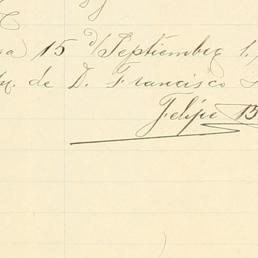 a 15 d/Septiembre 1.
de D. Francisco
Felipe B